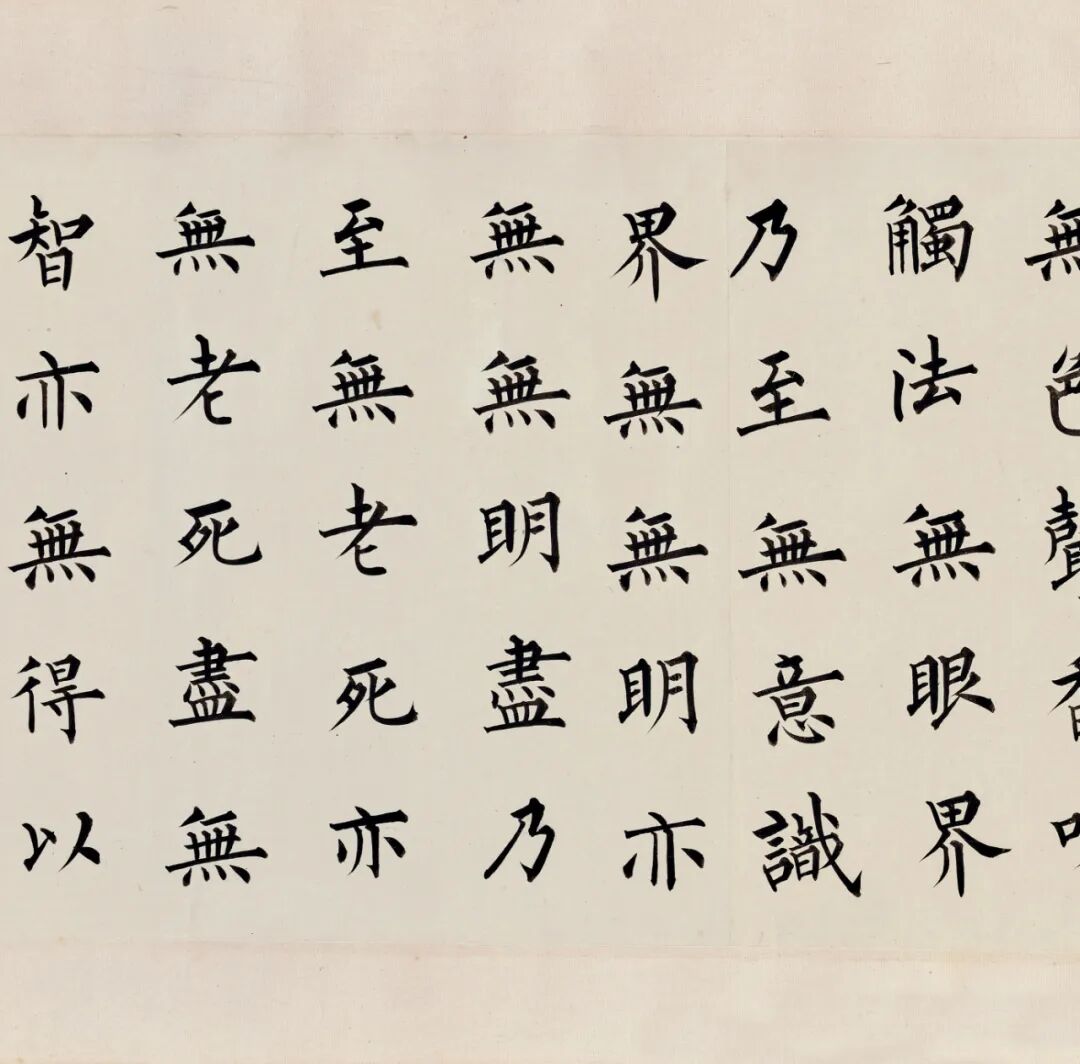 無色聲香
觸法無眼界
乃至無意識
界無無明亦
無無明盡乃
至無老死亦
無老死盡無
智亦無得以